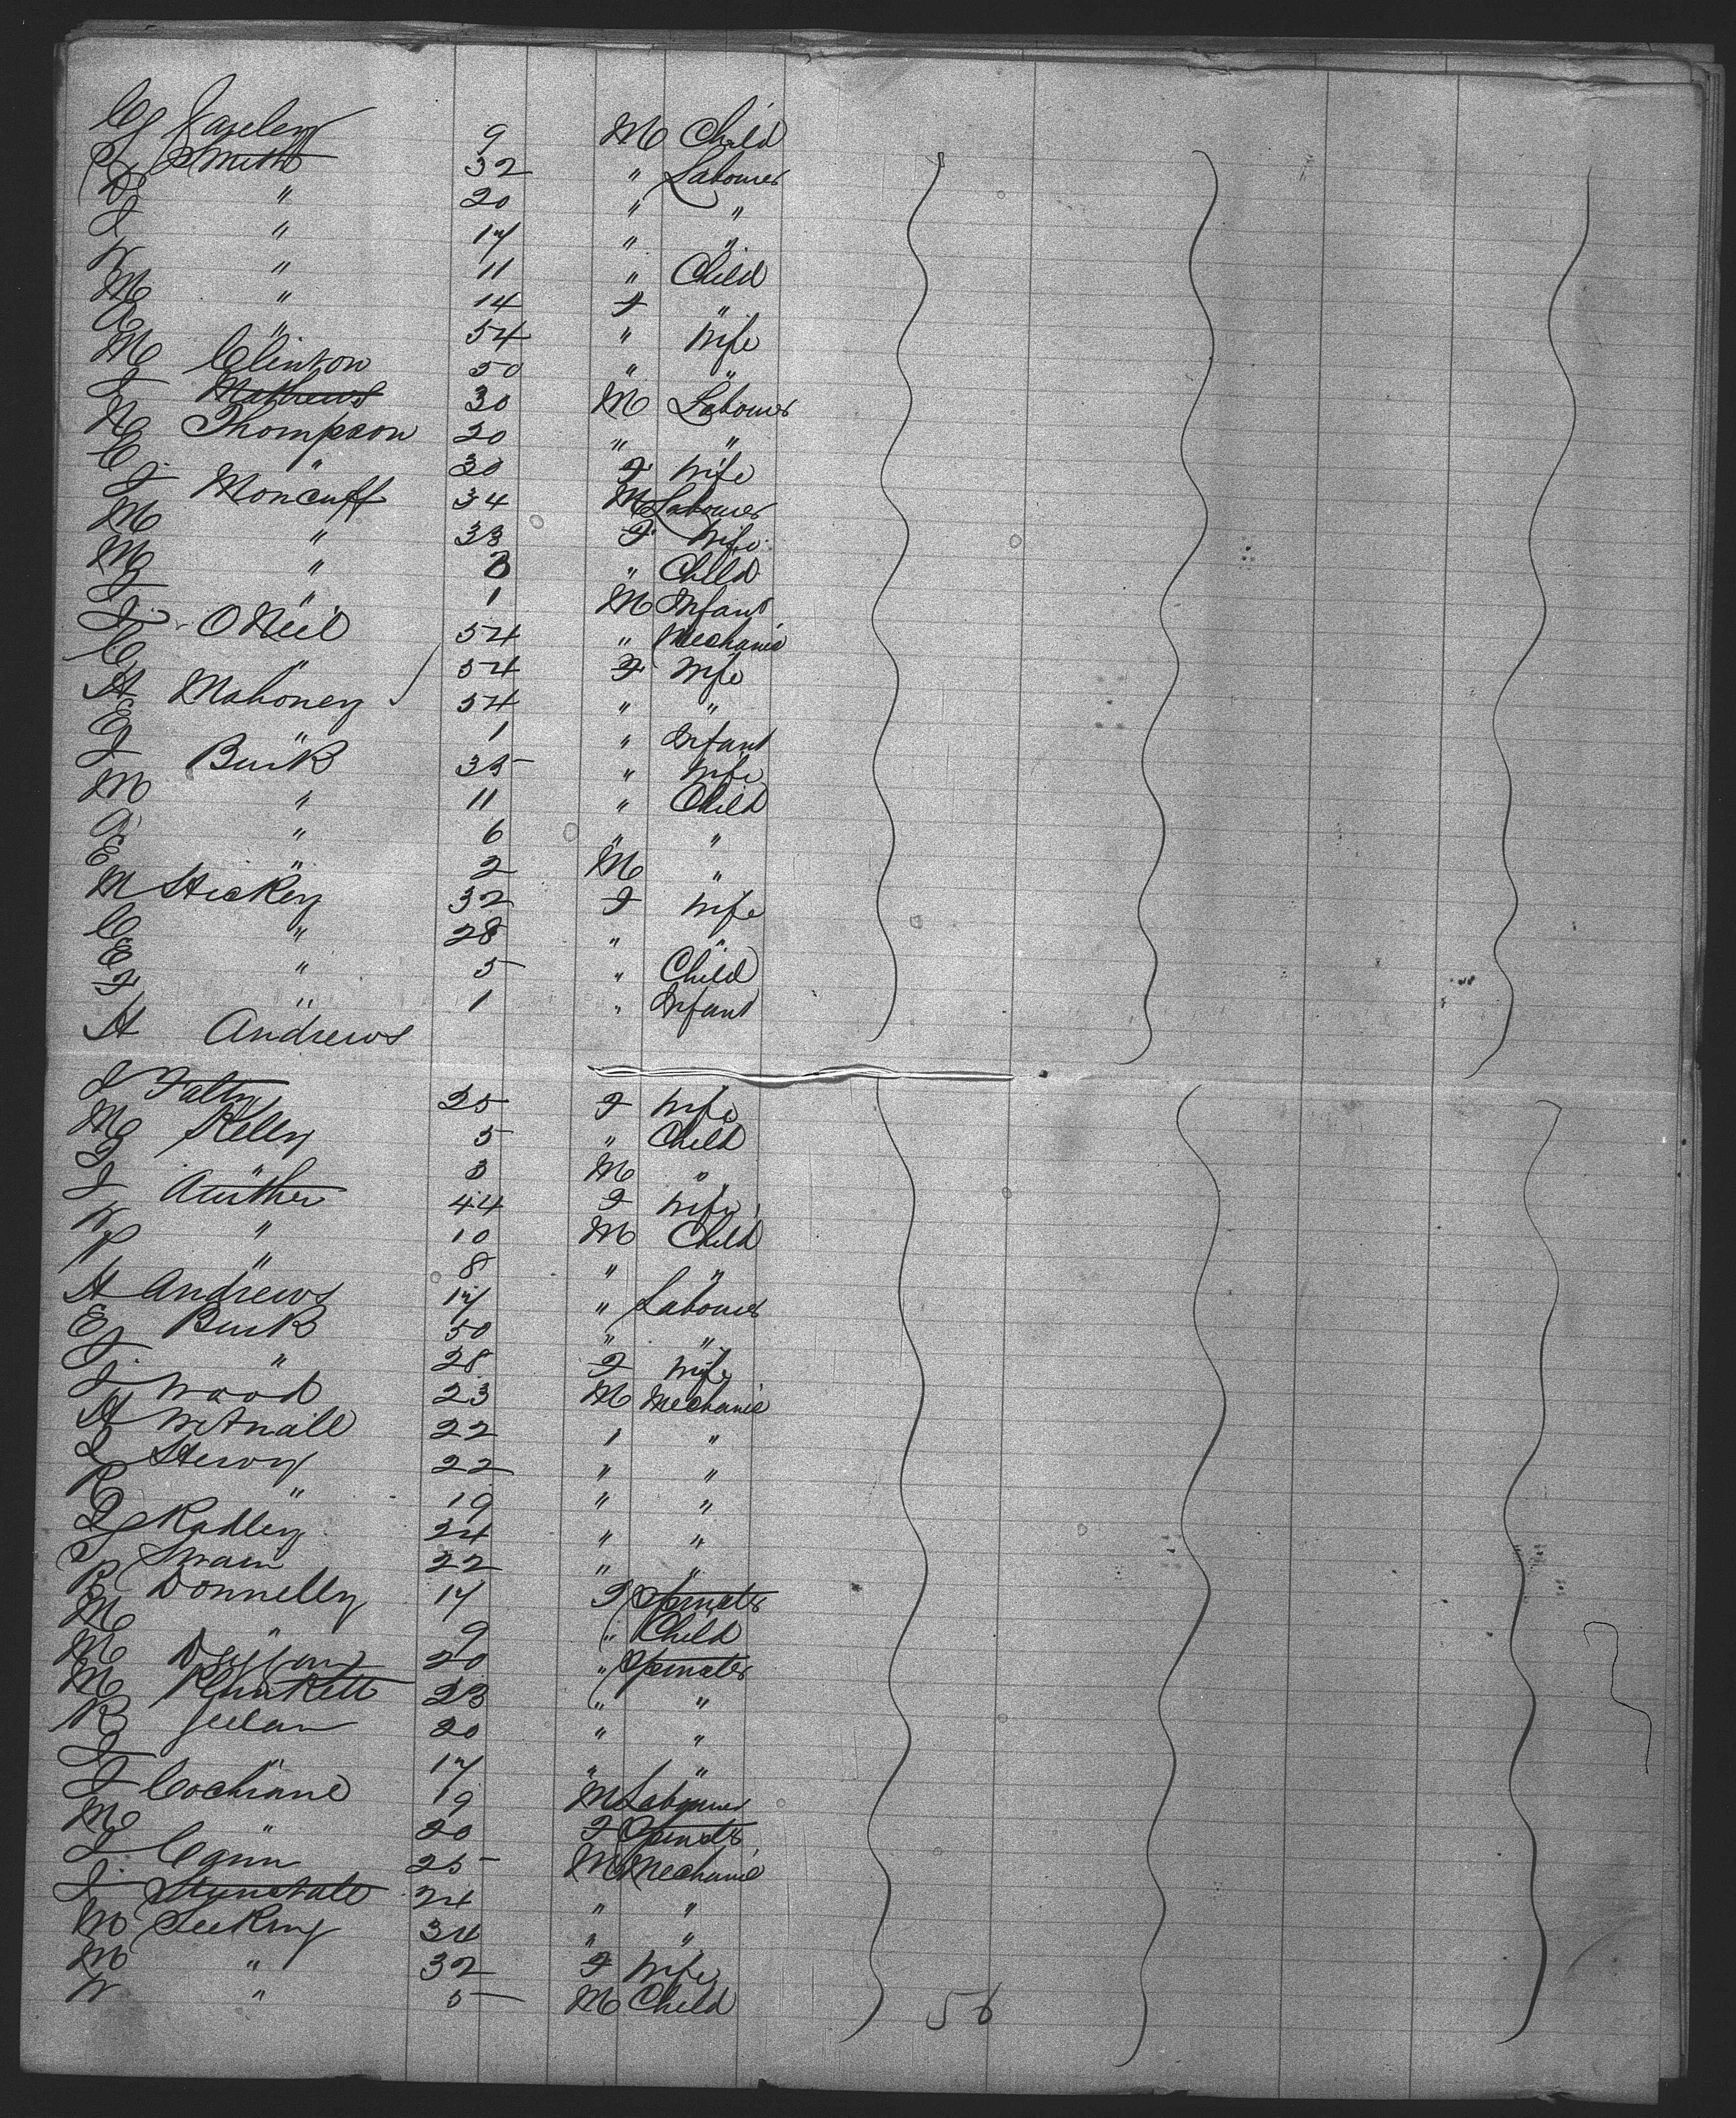 9 M Child
Smith 32 " Labourer
" 20 " "
J " 17 " "
W " 11 " Child
M " 14 F "
A " 54 " Wife
M Clinton 50 " "
J Mathews 30 M Labourer
Thompson 20 " "
C " 30 F Wife
J Moncuff 34 M Labourer
M " 33 F Wife
M " 3 " Child
J " 1 M Infant
J ONeil 54 " Mechanic
C " 54 F Wife
H Mahoney 54 " "
E " 1 " Infant
J Burk 35 " Wife
M " 11 " Child
A " 6 " "
E " 2 M "
M Hickey 32 F Wife
C " 28 " "
E " 5 " Child
F " 1 " Infant
H Andrews
25 F Wife
M Kelly 5 " Child
J " 3 M "
J 44 F Wife
W " 10 M Child
P " 8 " "
H Andrews 17 " Labourer
E Burk 50 " "
J " 28 F Wife
J Wood 23 M Mechanic
H 22 " "
22 " "
R " 19 " "
Radley 24 " "
Swain 22 " "
R Donnelly 17 F Spinster
M " 9 " Child
M 20 " Spinster
M Plunkett 23 " "
K 20 " "
17 " "
J Cochrane 19 M Labourer
M " 20 F Spinster
J Cann 25 M Mechanic
J 24 " "
34 " "
M " 32 F Wife
W " 5 M Child
56